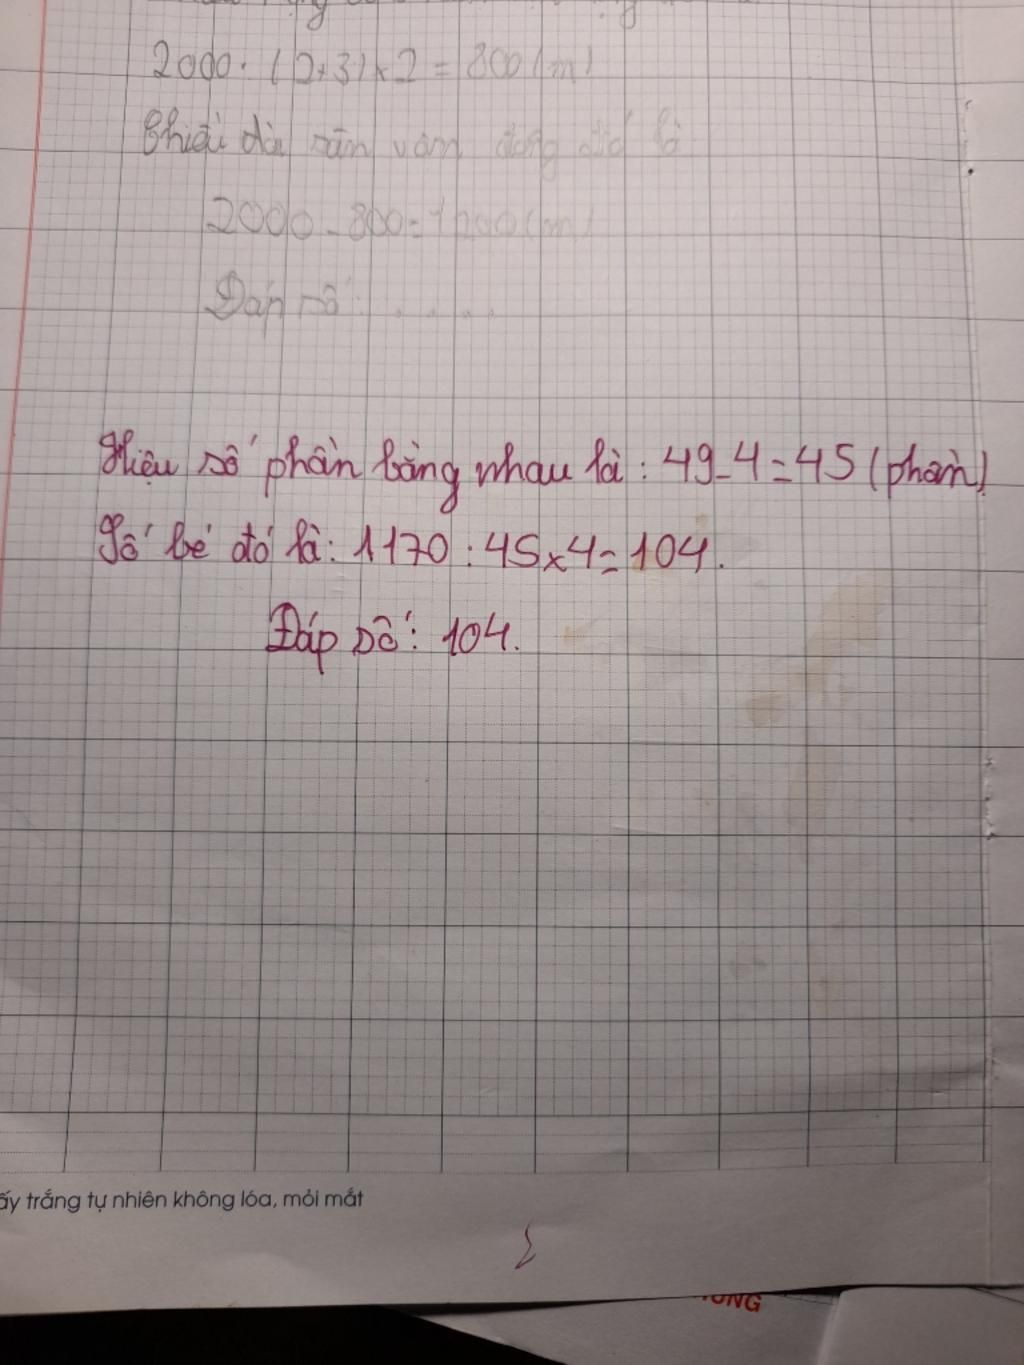 2000 : (2+3) x 2 = 800 (m)
Chiều dài sân vận động đó là
2000 - 800 = 1200 (m)
Đáp số : . . . . .
Hiệu số phần bằng nhau là : 49 - 4 = 45 (phần)
Số bé đó là : 1170 : 45 x 4 = 104.
Đáp số : 104.
ấy trắng tự nhiên không lóa, mỏi mắt